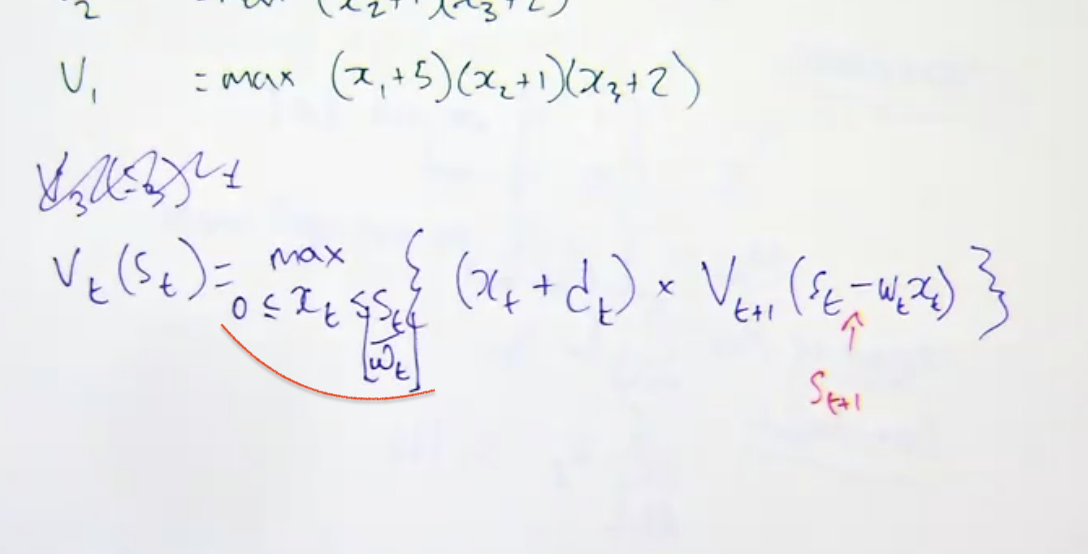 2 (x₂+1)(x₃+2)
V₁ = max (x₁+5)(x₂+1)(x₃+2)
V_t(S_t) = max_{0 ≤ x_t ≤ ⌊S_t/w_t⌋} { (x_t + d_t) × V_{t+1}(S_t − w_t x_t) }
S_{t+1}